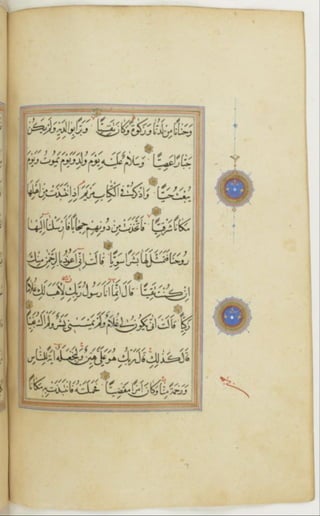 وَحَنَانًا مِنْ لَدُنَّا وَزَكٰوةً وَكَانَ تَقِيًّا وَبَرًّا بِوَالِدَيْهِ وَلَمْ يَكُنْ
جَبَّارًا عَصِيًّا وَسَلَامٌ عَلَيْهِ يَوْمَ وُلِدَ وَيَوْمَ يَمُوتُ وَيَوْمَ
يُبْعَثُ حَيًّا وَاذْكُرْ فِي الْكِتَابِ مَرْيَمَ اِذِ انْتَبَذَتْ مِنْ اَهْلِهَا
مَكَانًا شَرْقِيًّا فَاتَّخَذَتْ مِنْ دُونِهِمْ حِجَابًا فَاَرْسَلْنَا اِلَيْهَا
رُوحَنَا فَتَمَثَّلَ لَهَا بَشَرًا سَوِيًّا قَالَتْ اِنِّي اَعُوذُ بِالرَّحْمٰنِ مِنْكَ
اِنْ كُنْتَ تَقِيًّا قَالَ اِنَّمَا اَنَا رَسُولُ رَبِّكِ لِاَهَبَ لَكِ غُلَامًا
زَكِيًّا قَالَتْ اَنّٰى يَكُونُ لِي غُلَامٌ وَلَمْ يَمْسَسْنِي بَشَرٌ وَلَمْ اَكُ بَغِيًّا
قَالَ كَذٰلِكِ قَالَ رَبُّكِ هُوَ عَلَيَّ هَيِّنٌ وَلِنَجْعَلَهُ اٰيَةً لِلنَّاسِ
وَرَحْمَةً مِنَّا وَكَانَ اَمْرًا مَقْضِيًّا فَحَمَلَتْهُ فَانْتَبَذَتْ بِهِ مَكَانًا